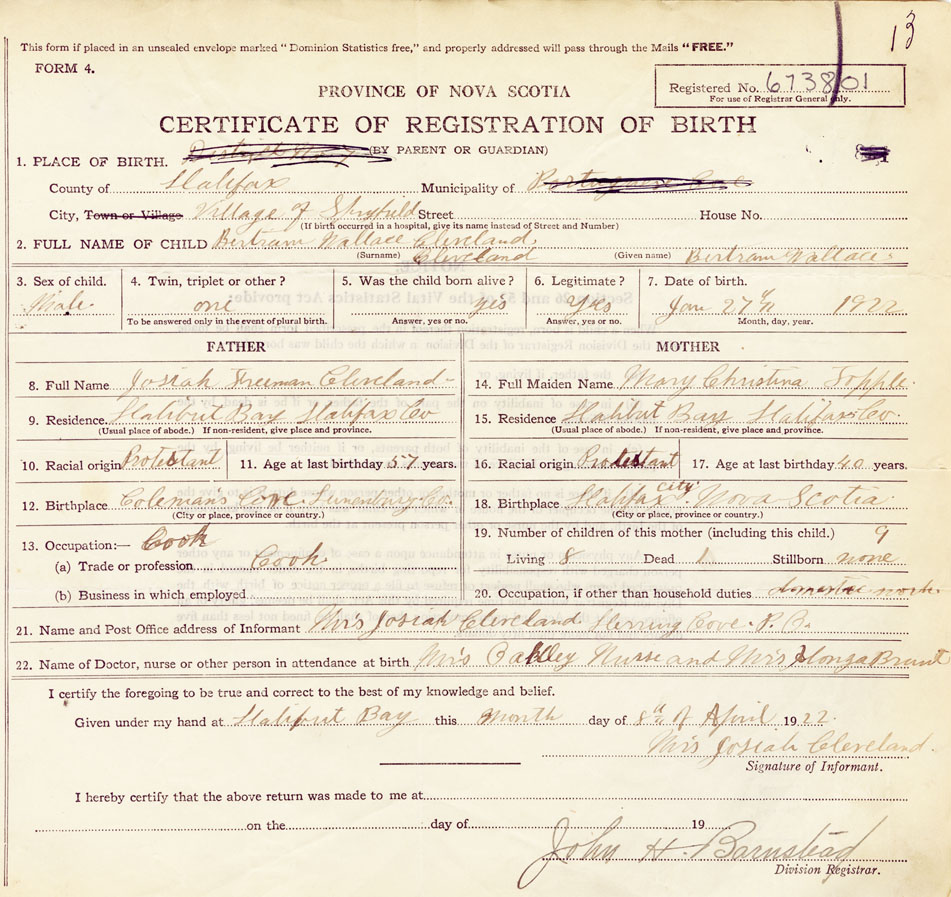 13
This form if placed in an unsealed envelope marked "Dominion Statistics free," and properly addressed will pass through the Mails "FREE."
FORM 4.
Registered No. 673801
For use of Registrar General only.
PROVINCE OF NOVA SCOTIA
CERTIFICATE OF REGISTRATION OF BIRTH
(BY PARENT OR GUARDIAN)
1. PLACE OF BIRTH.
County of Halifax Municipality of
City, Town or Village Village of Spryfield Street House No.
(If birth occurred in a hospital, give its name instead of Street and Number)
2. FULL NAME OF CHILD Bertram Wallace Cleveland.
(Surname) Cleveland (Given name) Bertram Wallace.
3. Sex of child. 4. Twin, triplet or other? 5. Was the child born alive? 6. Legitimate? 7. Date of birth.
Male one yes Yes Jan 27th 1922
To be answered only in the event of plural birth. Answer, yes or no. Answer, yes or no. Month, day, year.
FATHER MOTHER
8. Full Name Josiah Freeman Cleveland 14. Full Maiden Name Mary Christina Topple.
9. Residence. Halibut Bay Halifax Co 15. Residence Halibut Bay Halifax Co.
(Usual place of abode.) If non-resident, give place and province. (Usual place of abode.) If non-resident, give place and province.
10. Racial origin Protestant 11. Age at last birthday 57 years. 16. Racial origin Protestant 17. Age at last birthday 40 years.
12. Birthplace Coleman's Cove Lunenburg Co. 18. Birthplace Halifax City Nova Scotia.
(City or place, province or country.) (City or place, province or country.)
13. Occupation:— Cook 19. Number of children of this mother (including this child.) 9
(a) Trade or profession Cook Living 8 Dead 1 Stillborn none
(b) Business in which employed 20. Occupation, if other than household duties domestic work
21. Name and Post Office address of Informant Mrs Josiah Cleveland Herring Cove P.O.
22. Name of Doctor, nurse or other person in attendance at birth Mrs Nurse and Mrs
I certify the foregoing to be true and correct to the best of my knowledge and belief.
Given under my hand at Halibut Bay this month day of 8th of April 1922.
Mrs Josiah Cleveland.
Signature of Informant.
I hereby certify that the above return was made to me at
on the day of 19
John H. Barnstead
Division Registrar.